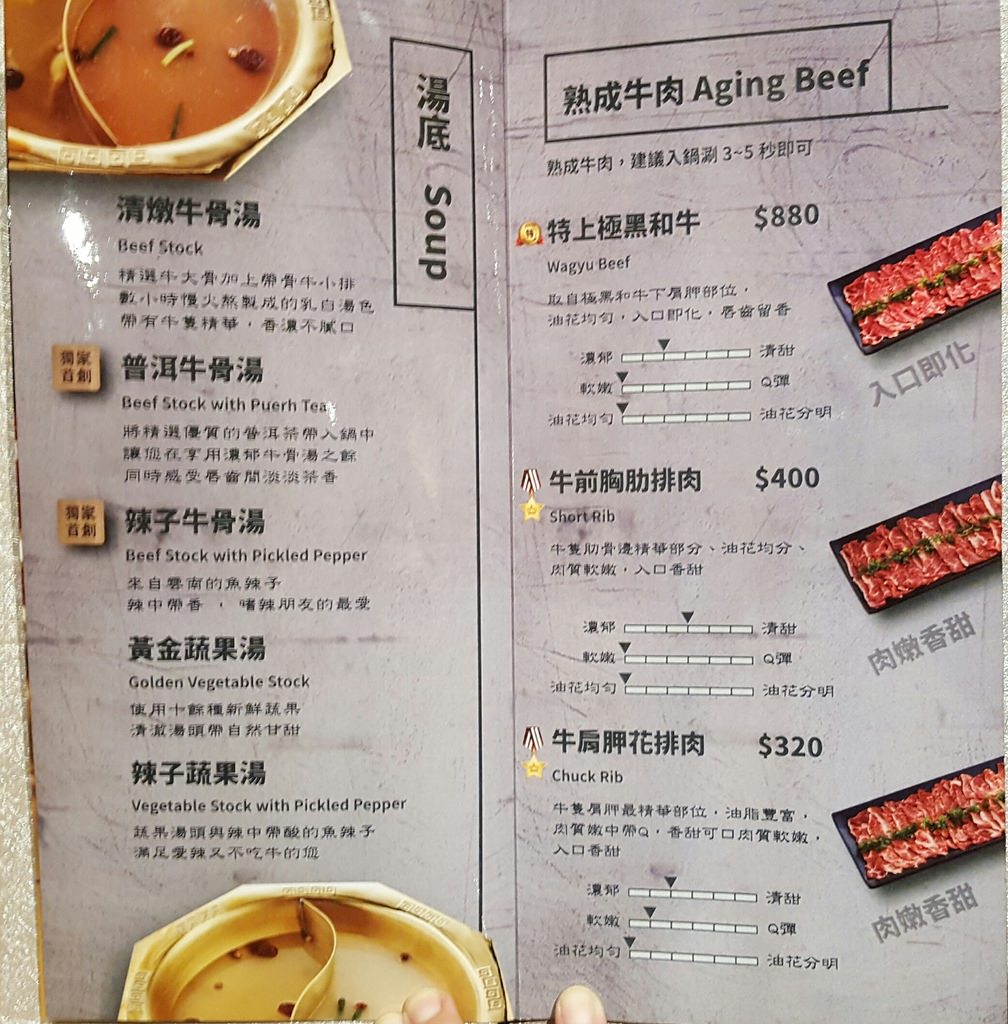 湯底 Soup
清燉牛骨湯
Beef Stock
精選牛大骨加上帶骨牛小排
數小時慢火熬製成的乳白湯色
帶有牛隻精華，香濃不膩口
獨家
首創
普洱牛骨湯
Beef Stock with Puerh Tea
將精選優質的普洱茶帶入鍋中
讓您在享用濃郁牛骨湯之餘
同時感受唇齒間淡淡茶香
獨家
首創
辣子牛骨湯
Beef Stock with Pickled Pepper
來自雲南的魚辣子
辣中帶香 ， 嗜辣朋友的最愛
黃金蔬果湯
Golden Vegetable Stock
使用十餘種新鮮蔬果
清澈湯頭帶自然甘甜
辣子蔬果湯
Vegetable Stock with Pickled Pepper
蔬果湯頭與辣中帶酸的魚辣子
滿足愛辣又不吃牛的您
熟成牛肉 Aging Beef
熟成牛肉，建議入鍋涮 3~5 秒即可
特
特上極黑和牛 $880
Wagyu Beef
取自極黑和牛下肩胛部位，
油花均勻，入口即化，唇齒留香
濃郁 清甜
軟嫩 Q彈
油花均勻 油花分明
入口即化
牛前胸肋排肉 $400
Short Rib
牛隻肋骨邊精華部分、油花均分、
肉質軟嫩，入口香甜
濃郁 清甜
軟嫩 Q彈
油花均勻 油花分明
肉嫩香甜
牛肩胛花排肉 $320
Chuck Rib
牛隻肩胛最精華部位，油脂豐富，
肉質嫩中帶Q，香甜可口肉質軟嫩，
入口香甜
濃郁 清甜
軟嫩 Q彈
油花均勻 油花分明
肉嫩香甜